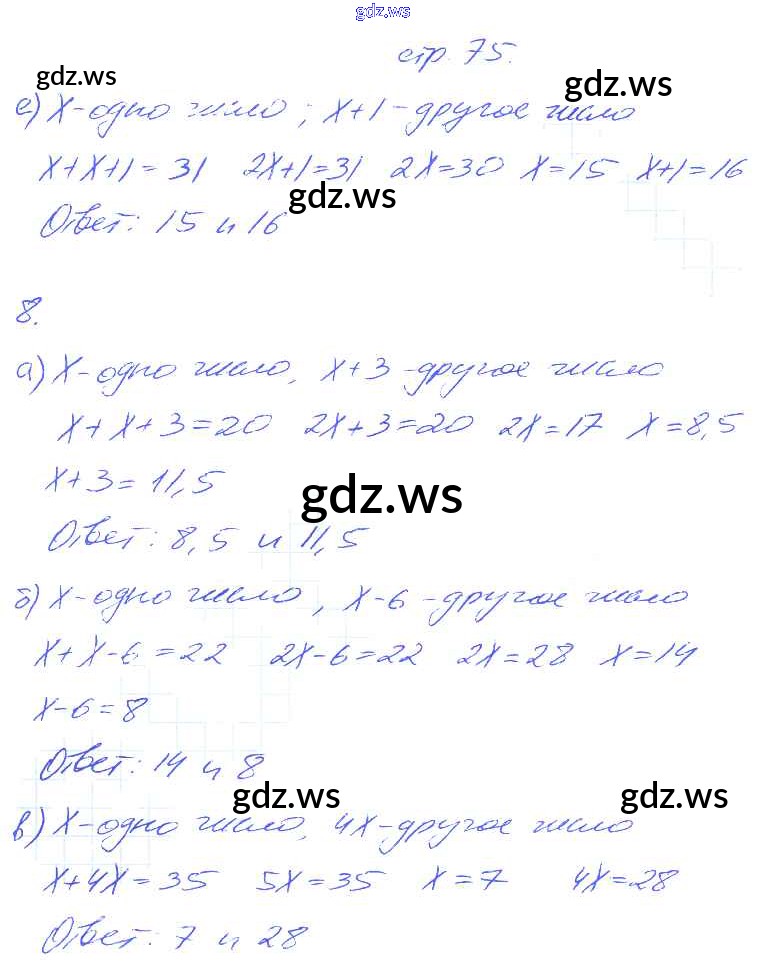 gdz.ws
стр. 75.
gdz.ws
gdz.ws
е) x-одно число; x+1-другое число
x+x+1=31 2x+1=31 2x=30 x=15 x+1=16
gdz.ws
Ответ: 15 и 16
8.
а) x-одно число, x+3-другое число
x+x+3=20 2x+3=20 2x=17 x=8,5
x+3=11,5
gdz.ws
Ответ: 8,5 и 11,5
б) x-одно число, x-6-другое число
x+x-6=22 2x-6=22 2x=28 x=14
x-6=8
Ответ: 14 и 8
gdz.ws
gdz.ws
в) x-одно число, 4x-другое число
x+4x=35 5x=35 x=7 4x=28
Ответ: 7 и 28